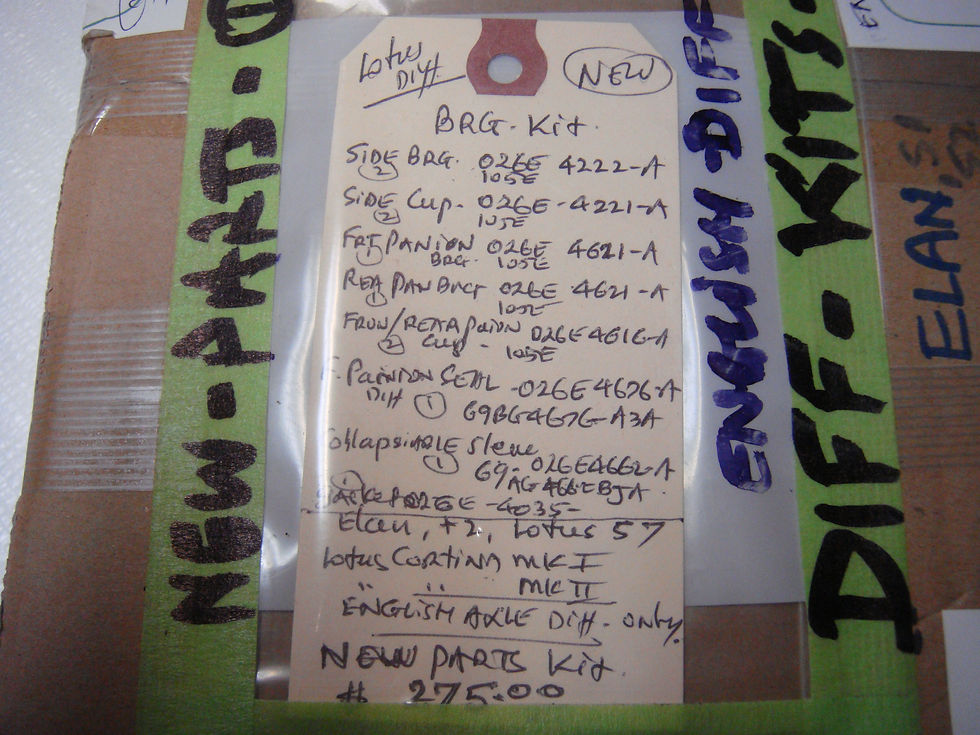 NEW-PARTS-①
Lotus
Diff
NEW
BRG. Kit.
SIDE BRG. 026E 4222-A
② 105E
SIDE Cup. 026E-4221-A
② 105E
FRT PANION 026E 4621-A
① BRG. 105E
REA PAN BRG 026E 4621-A
① 105E
FRON/REAR PAION 026E4616-A
② Cup - 105E
PAINION SEAL -026E4676-A
Diff ① 69BG4676-A3A
Collapsiable Sleve
① 69-026E4662-A
AG4662BJA
026E-4035-
Elan, +2, Lotus 57
Lotus Cortina MK I
" " MK II
ENGLISH AXLE Diff. only.
NEW PARTS Kit.
$ 275.00
ENGLISH DIFF
DIFF-KITS-
ELAN